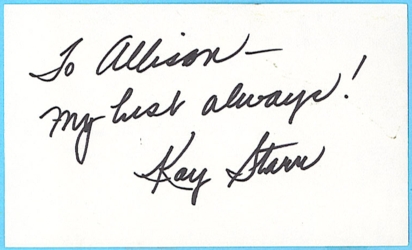 To Allison—
my best always!
Kay Starr